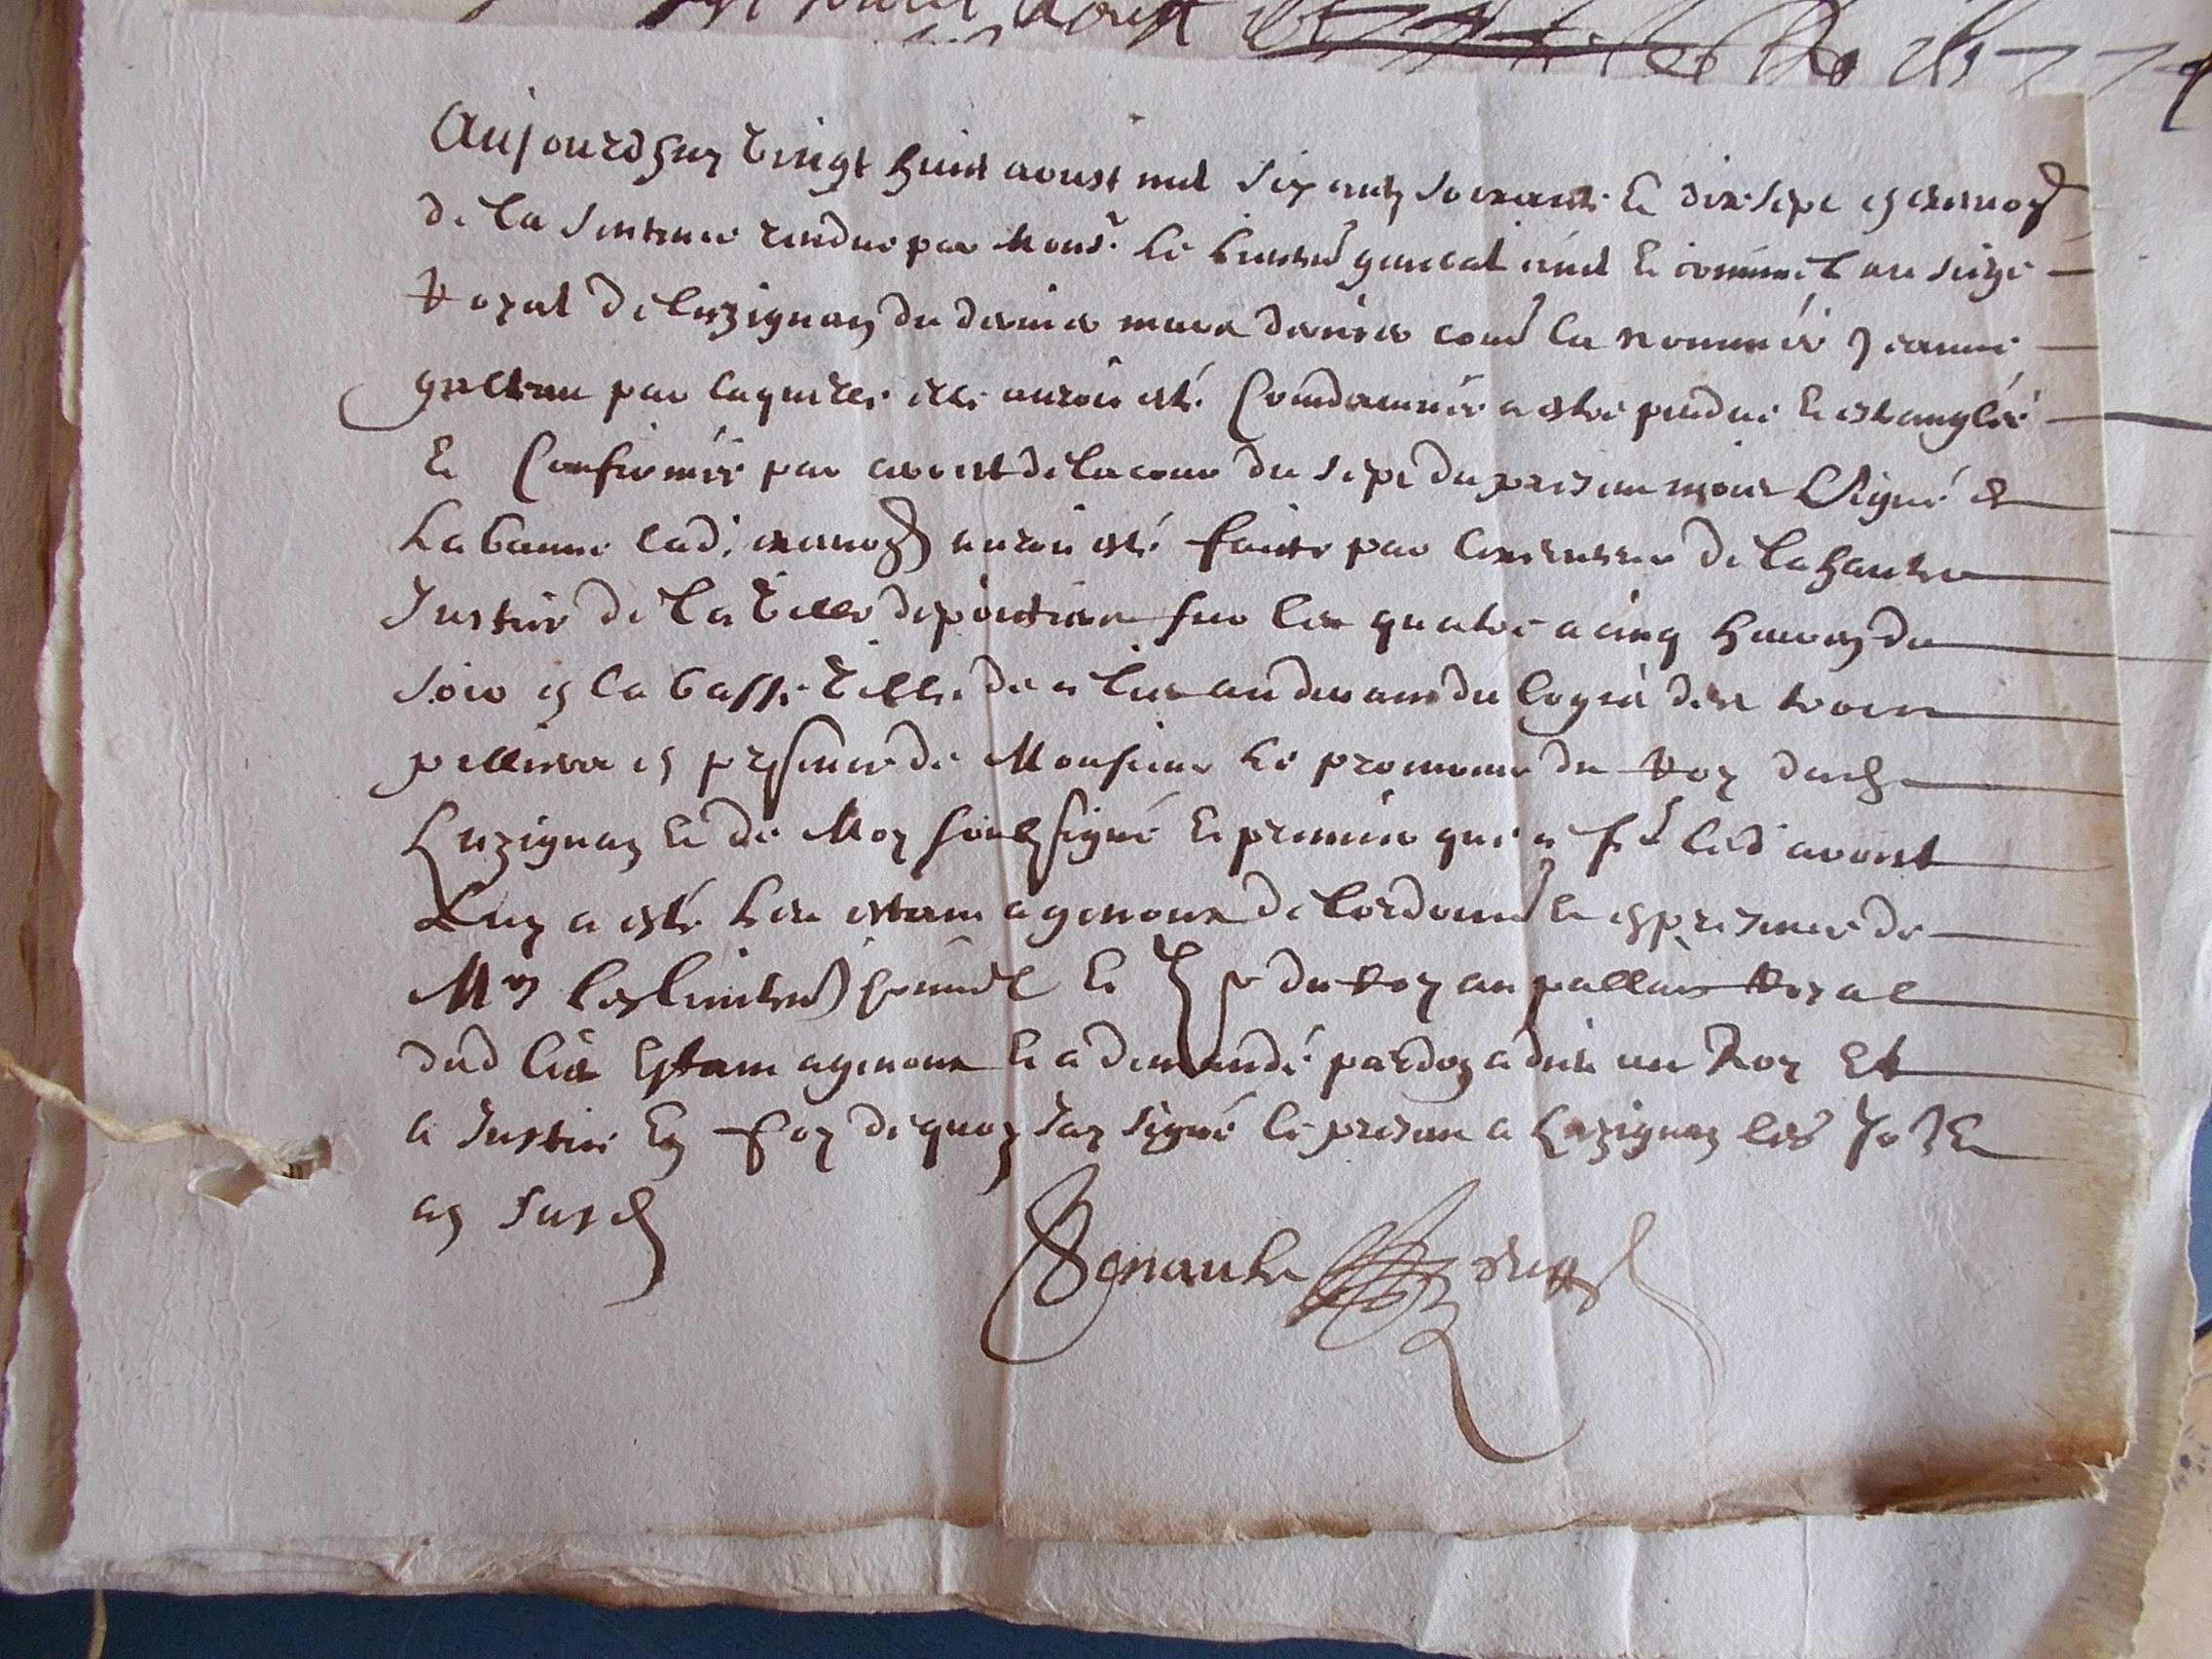 Aujourdhuy vingt huict aoust mil six cents soixante & dix sept
de la sentence rendue par Mons.r le lieuten general civil & criminel au siege
Royal de Luzignan du dernier mars dernier la nommée Jeanne
par laquelle elle auroit esté Condamnée a estre pendue & estranglée
& Confirmée par arrest de la cour du sept du present mois Signé
Labaune lad. auroit esté faicte par lexecuteur de la haulte
Justice de la ville de poictiers sur les quatre a cinq heures du
soir en la basse ville de ce lieu au devant du logis des trois
pilliers en presence de Monsieur le procureur du Roy dud
Luzignan & de Moy soubsigné & premier que ce led arrest
Luy a esté leu estant a genoux de lordonn & en presence de
Mrs les lieuten criminel & p du Roy au pallais Royal
dud lieu Estant a genoux & a demandé pardon a dieu au Roy Et
a Justice En foy de quoy Jay signé le present a Luzignan les Jo &
an susd